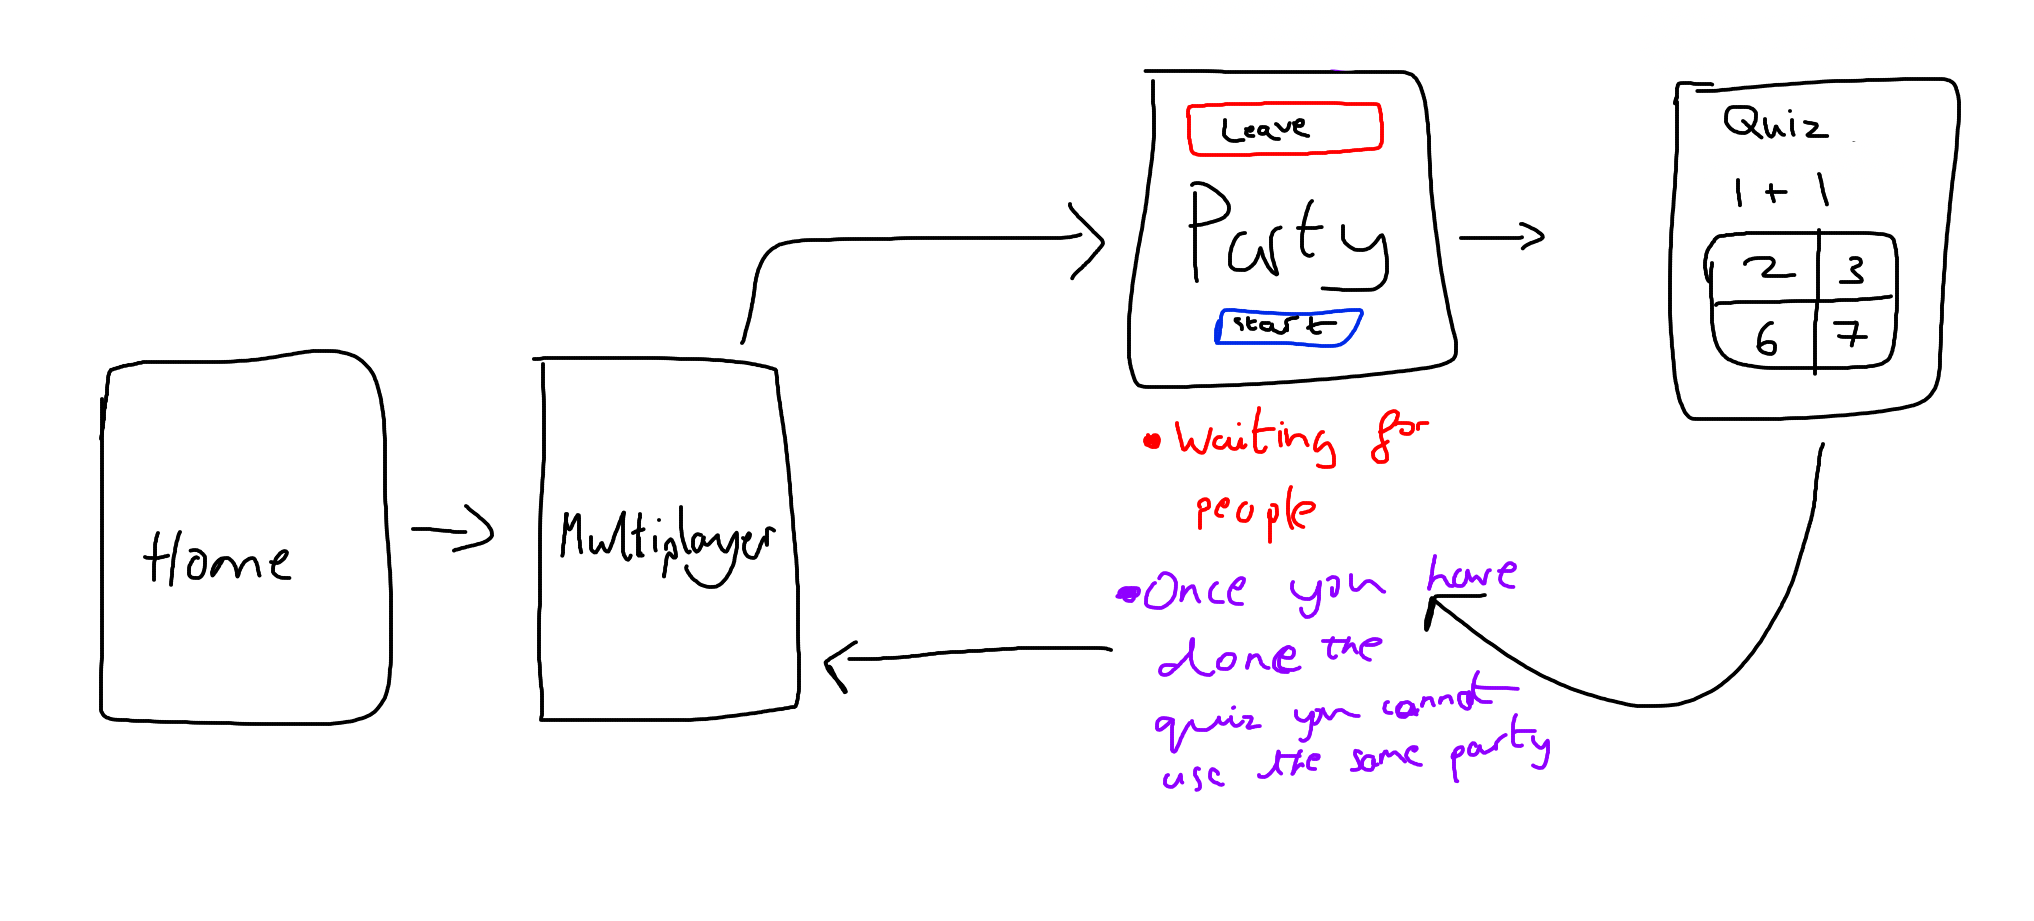 Home
Multiplayer
Leave
Party
Start
• Waiting for
people
• Once you have
done the
quiz you cannot
use the same party
Quiz
1 + 1
2 3
6 7